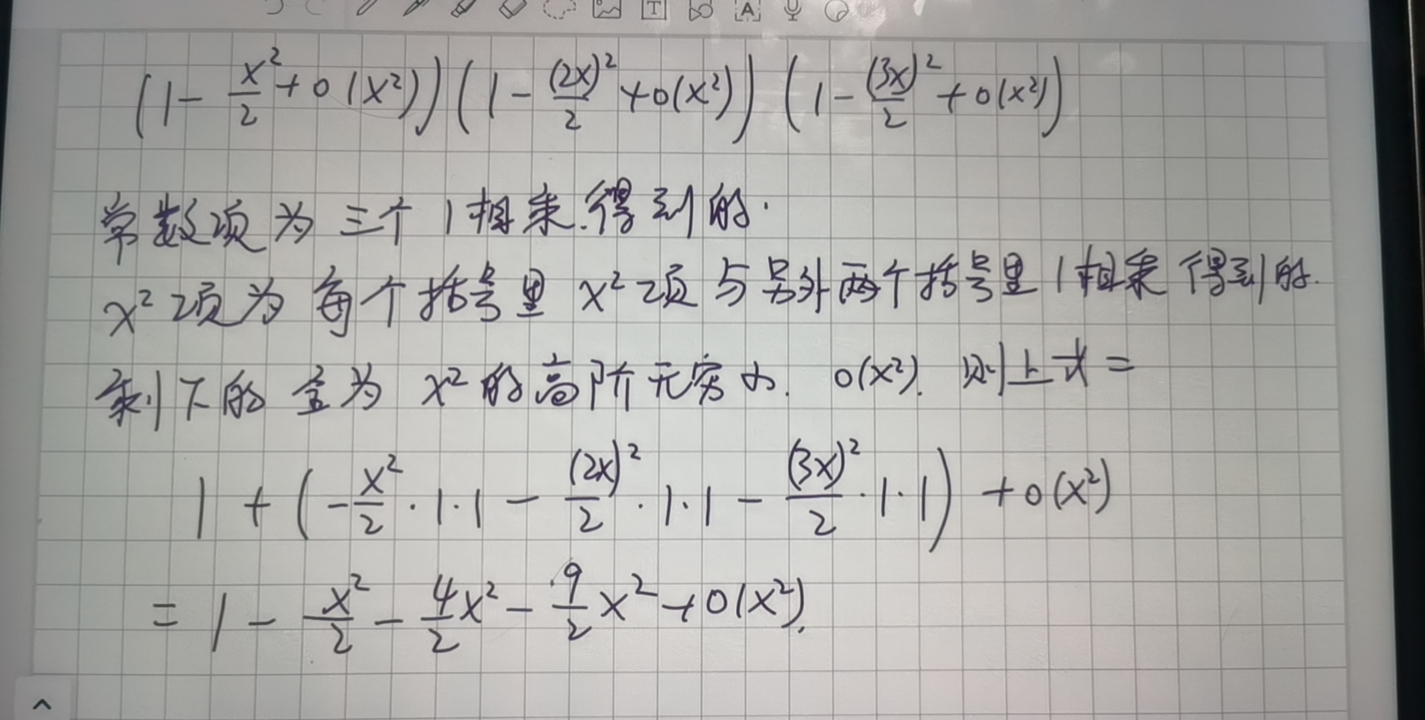 (1 - x²/2 + o(x²))(1 - (2x)²/2 + o(x²))(1 - (3x)²/2 + o(x²))
常数项为三个1相乘得到的.
x²项为每个括号里x²项与另外两个括号里1相乘得到的.
剩下的全为x²的高阶无穷小. o(x²). 则上式=
1 + (-x²/2·1·1 - (2x)²/2·1·1 - (3x)²/2·1·1) + o(x²)
= 1 - x²/2 - 4/2x² - 9/2x² + o(x²).